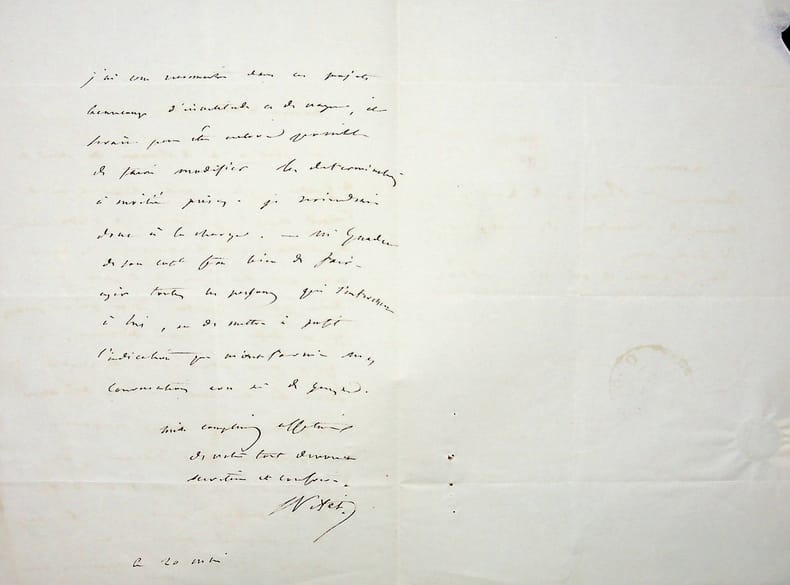 j'ai cru reconnaitre dans ces projets
beaucoup d'incertitude et de vague, il
serait peut être encore possible
de faire modifier les déterminations
à moitié prises. je reviendrai
donc à la charge. — M.
de son coté fera bien de faire
agir toutes les personnes qui s'intéressent
à lui, et de mettre à profit
l'indication que m'ont fournie mes
conversations avec M. de
mille compliments affectueux
de votre tout dévoué
serviteur et confrère.
L Vitet.
le 20